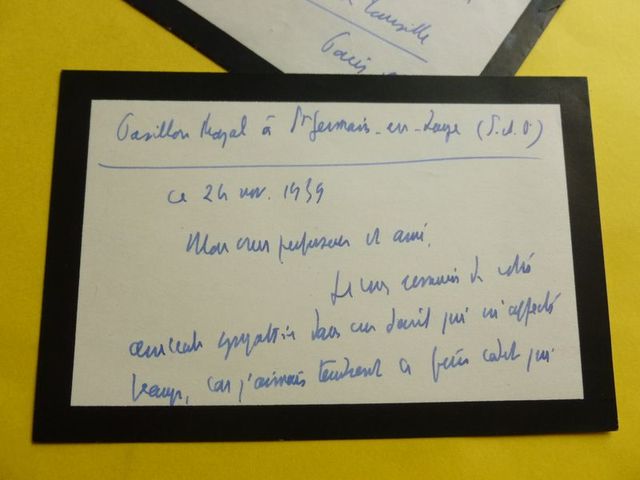 Tourville
Paris
Pavillon Royal à St Germain-en-Laye (S.&O.)
ce 24 nov. 1939
Mon cher professeur et ami,
Je vous remercie de votre
amicale sympathie dans ce deuil qui m'affecte
beaucoup, car j'aimais tendrement ce frère cadet qui